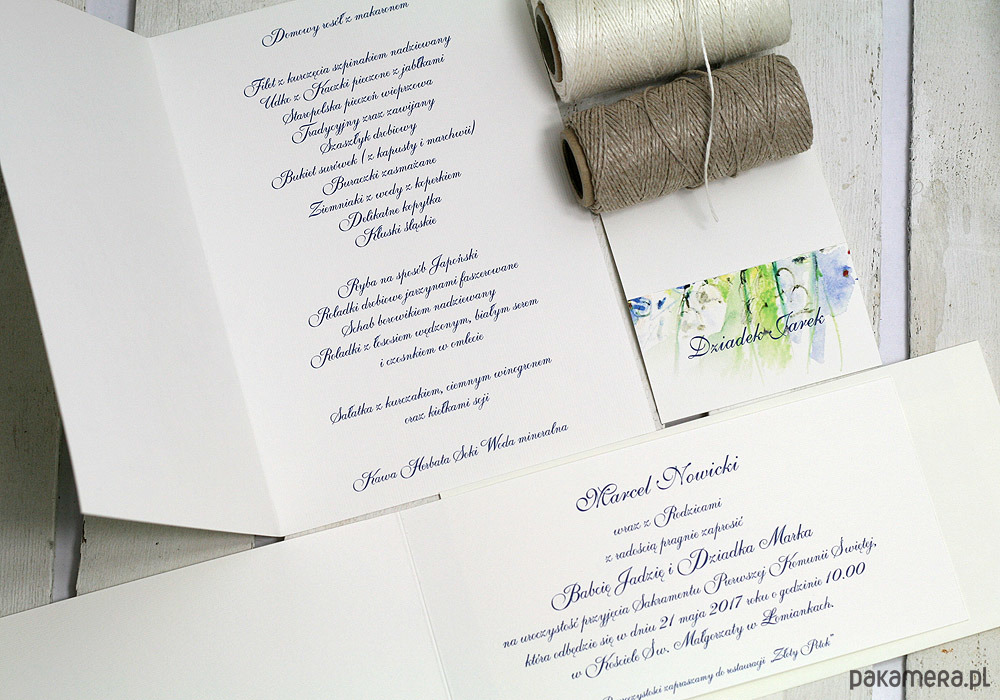 Domowy rosół z makaronem
Filet z kurczęcia szpinakiem nadziewany
Udko z Kaczki pieczone z jabłkami
Staropolska pieczeń wieprzowa
Tradycyjny zraz zawijany
Szaszłyk drobiowy
Bukiet surówek ( z kapusty i marchwii)
Buraczki zasmażane
Ziemniaki z wody z koperkiem
Delikatne kopytka
Kluski śląskie
Ryba na sposób Japoński
Roladki drobiowe jarzynami faszerowane
Schab borowikiem nadziewany
Roladki z łososiem wędzonym, białym serem
i czosnkiem w omlecie
Sałatka z kurczakiem, ciemnym winogronem
oraz kiełkami soji
Kawa Herbata Soki Woda mineralna
Dziadek Jarek
Marcel Nowicki
wraz z Rodzicami
z radością pragnie zaprosić
Babcię Jadzię i Dziadka Marka
na uroczystość przyjęcia Sakramentu Pierwszej Komunii Świętej,
która odbędzie się w dniu 21 maja 2017 roku o godzinie 10.00
w Kościele Św. Małgorzaty w Łomiankach.
uroczystości zapraszamy do restauracji "Złoty
pakamera.pl